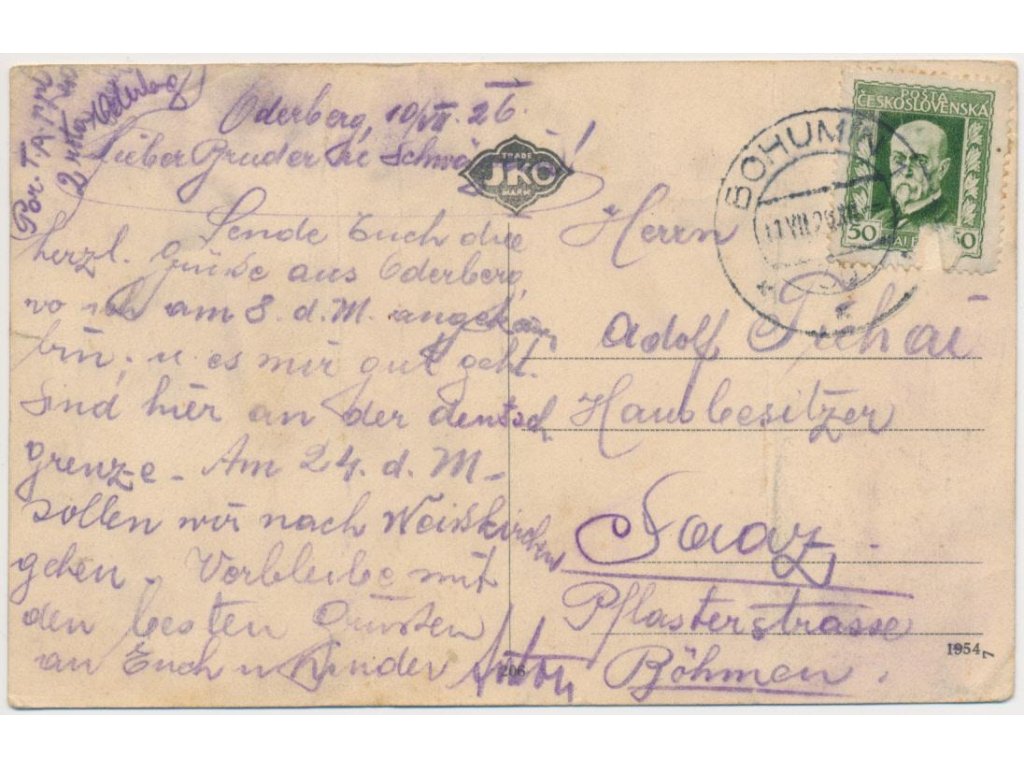 Oderberg, 10/VII. 26.
Lieber Bruder
Sende Euch die
herzl. Grüße aus Oderberg,
wo ich am 8. d. M. angekom̅
bin, u. es mir gut geht.
Sind hier an der deutsch.
grenze. Am 24. d. M.
sollen wir nach Weisskirchen
gehen. Verbleibe mit
den besten Grüssen
an Euch u Kinder Anton
Herrn
Adolf Tichai
Hausbesitzer
Saaz
Pflasterstrasse
Böhmen.
TRADE
JKO
MARK
206
1954
BOHUMÍN
11.VII.26
POŠTA
ČESKOSLOVENSKÁ
50 50